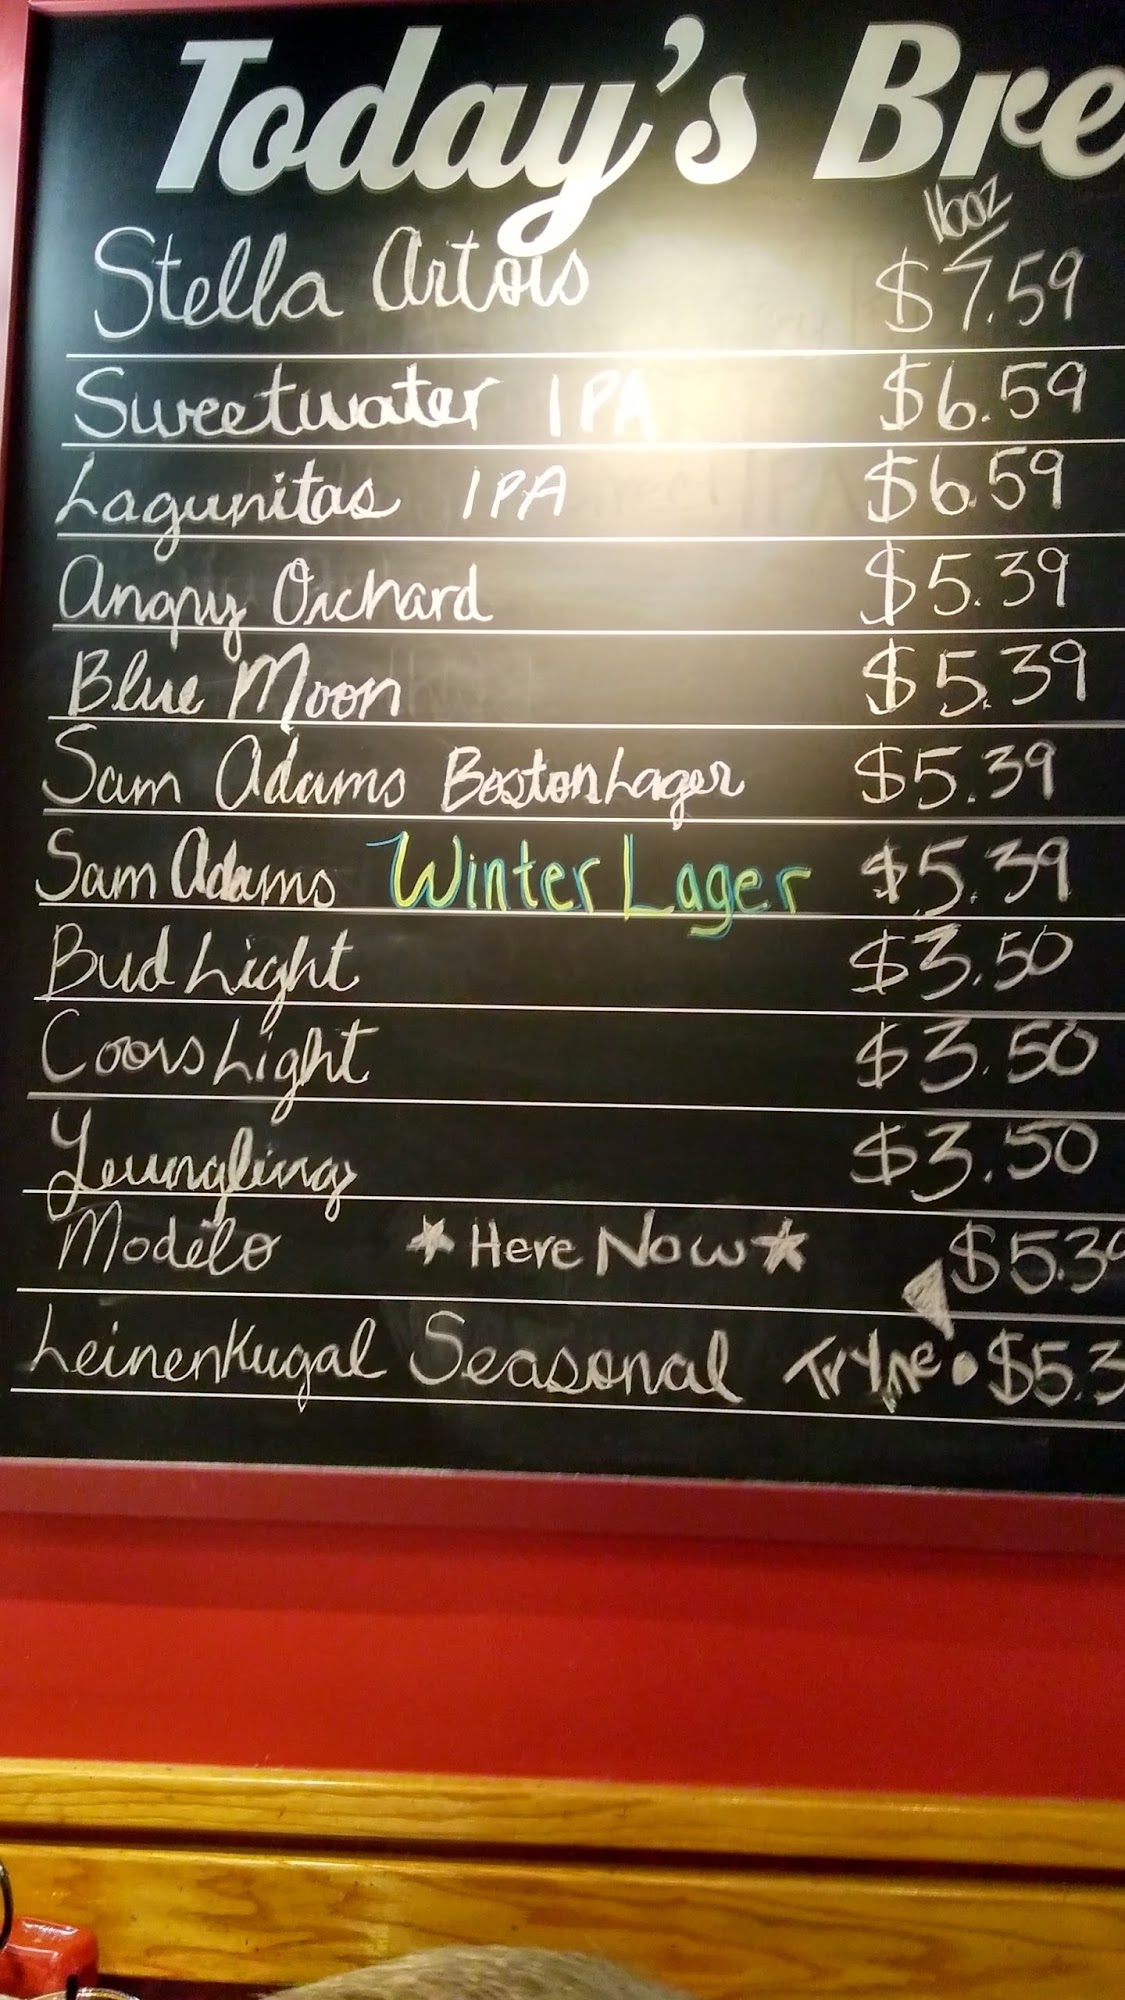 Today's Bre
16oz
Stella Artois $7.59
Sweetwater IPA $6.59
Lagunitas IPA $6.59
Angry Orchard $5.39
Blue Moon $5.39
Sam Adams Boston Lager $5.39
Sam Adams Winter Lager $5.39
Bud Light $3.50
Coors Light $3.50
Yeungling $3.50
Modelo *Here Now* $5.39
Leinenkugal Seasonal Try Me $5.3